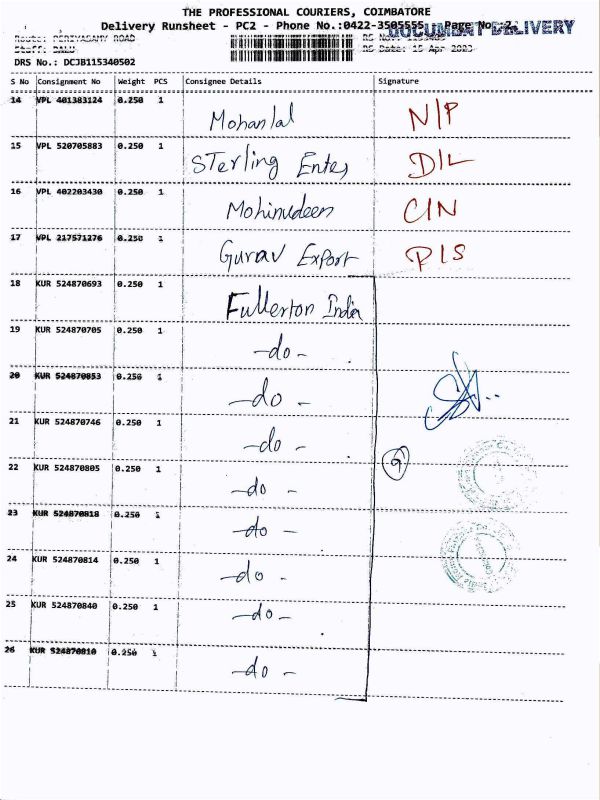 THE PROFESSIONAL COURIERS, COIMBATORE
Delivery Runsheet - PC2 - Phone No.:0422-3505555 Page No. 2
DOCUMENT DELIVERY
Route: PERIYASAMY ROAD
Staff: BALU
RS Date: 15 Apr 2023
DRS No.: DCJB115340502
S No Consignment No Weight PCS Consignee Details Signature
14 VPL 401383124 0.250 1 Mohanlal N/P
15 VPL 520705883 0.250 1 Sterling Enter, D/L
16 VPL 402203430 0.250 1 Mohinudeen C/N
17 VPL 217571276 0.250 1 Gurav Export P/S
18 KUR 524870693 0.250 1 Fullerton India
19 KUR 524870705 0.250 1 -do-
20 KUR 524870853 0.250 1 -do-
21 KUR 524870746 0.250 1 -do-
9
22 KUR 524870805 0.250 1 -do-
23 KUR 524870818 0.250 1 -do-
24 KUR 524870814 0.250 1 -do-
25 KUR 524870840 0.250 1 -do-
26 KUR 524870810 0.250 1 -do-